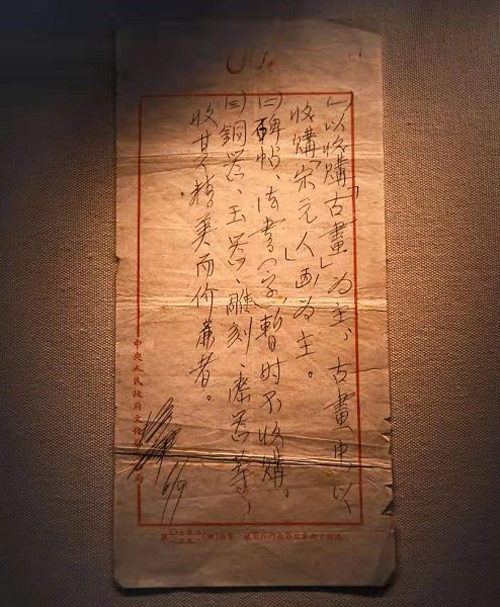 (一)以收購「古畫」為主，古畫中，以
收購「宋元人畫」為主。
(二)碑帖、法書(字)暫时不收購。
(三)銅器、玉器、雕刻、瓷器等，
收其精美而价廉者。
中央人民政府文化部
局